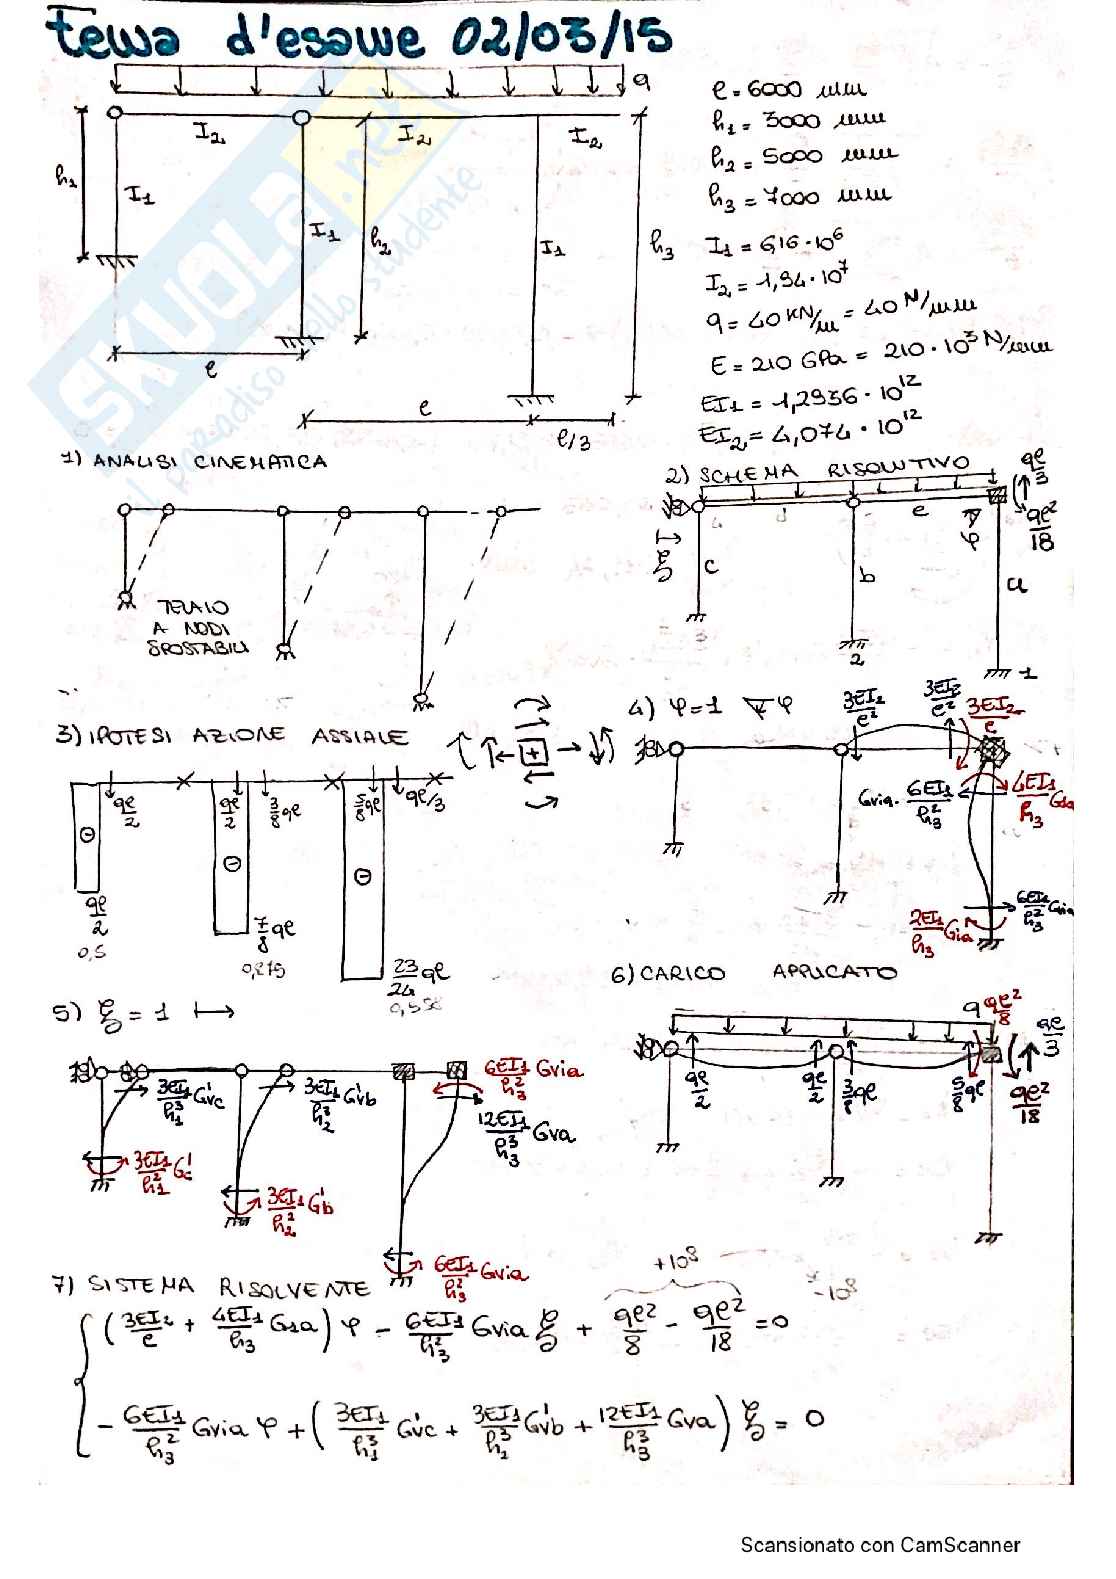 Tema d'esame 02/03/15
q
I2
I2
I2
h1
I1
I1
h2
I1
h3
l
l
l/3
l = 6000 mm
h1 = 3000 mm
h2 = 5000 mm
h3 = 7000 mm
I1 = 616·10^6
I2 = 1,94·10^7
q = 40 KN/m = 40 N/mm
E = 210 GPa = 210·10^3 N/mm
EI1 = 1,2936·10^12
EI2 = 4,074·10^12
1) ANALISI CINEMATICA
TELAIO
A NODI
SPOSTABILI
2) SCHEMA RISOLUTIVO
ql/3
ql²/18
d
e
φ
ξ
c
b
a
3
2
1
3) IPOTESI AZIONE ASSIALE
+
ql/2
ql/2
3/8 ql
5/8 ql
ql/3
ql/2
0,5
7/8 ql
0,875
23/24 ql
4) φ=1 φ
3EI2/l²
3EI2/l²
3EI2/l
Gvia · 6EI1/h3²
4EI1/h3 Gsa
6EI1/h3² Gvia
2EI1/h3 Gia
5) ξ = 1
3EI1/h1³ G'vc
3EI1/h2³ G'vb
6EI1/h3² Gvia
12EI1/h3³ Gva
3EI1/h1² G'c
3EI1/h2² G'b
6EI1/h3² Gvia
6) CARICO APPLICATO
q
ql²/8
ql/3
ql/2
ql/2
3/8 ql
5/8 ql
ql²/18
7) SISTEMA RISOLVENTE
+10^8
-10^8
(3EI2/l + 4EI1/h3 Gsa) φ - 6EI1/h3² Gvia ξ + ql²/8 - ql²/18 = 0
- 6EI1/h3² Gvia φ + (3EI1/h1³ G'vc + 3EI1/h2³ G'vb + 12EI1/h3³ Gva) ξ = 0
SKUOLA.net
il paradiso dello studente
Scansionato con CamScanner